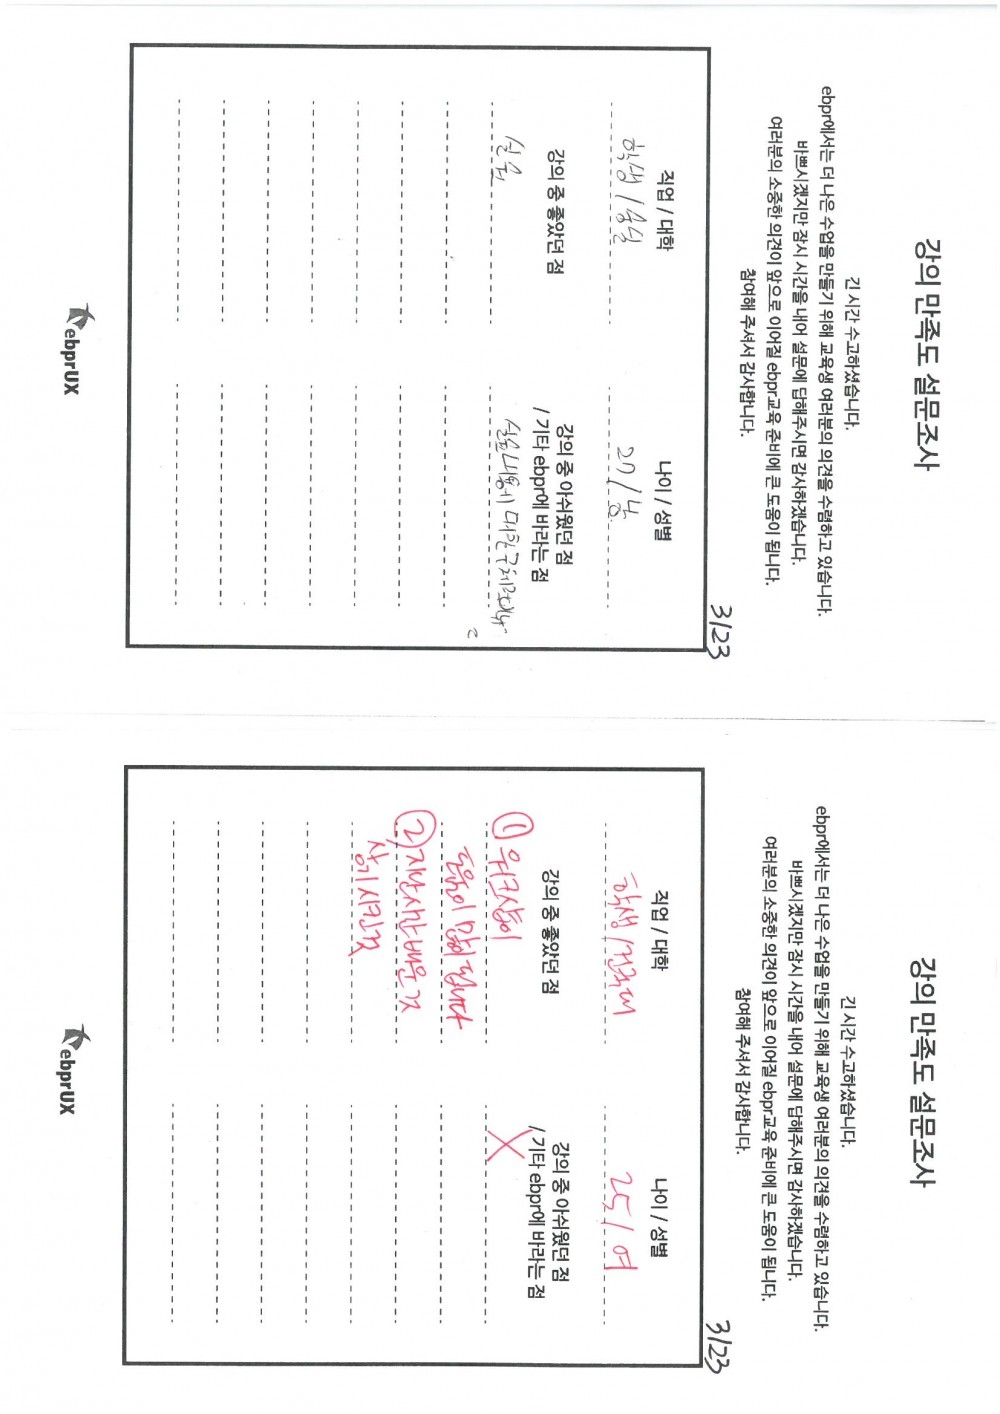 강의 만족도 설문조사
긴 시간 수고하셨습니다.
ebpr에서는 더 나은 수업을 만들기 위해 교육생 여러분의 의견을 수렴하고 있습니다.
바쁘시겠지만 잠시 시간을 내어 설문에 답해주시면 감사하겠습니다.
여러분의 소중한 의견이 앞으로 이어질 ebpr교육 준비에 큰 도움이 됩니다.
참여해 주셔서 감사합니다.
3/23
직업 / 대학
학생 / 숭실
나이 / 성별
27 / 남
강의 중 좋았던 점
실습
강의 중 아쉬웠던 점
/ 기타 ebpr에 바라는 점
실습내용에 대한 구체적
ebprUX
강의 만족도 설문조사
긴 시간 수고하셨습니다.
ebpr에서는 더 나은 수업을 만들기 위해 교육생 여러분의 의견을 수렴하고 있습니다.
바쁘시겠지만 잠시 시간을 내어 설문에 답해주시면 감사하겠습니다.
여러분의 소중한 의견이 앞으로 이어질 ebpr교육 준비에 큰 도움이 됩니다.
참여해 주셔서 감사합니다.
3/23
직업 / 대학
학생 / 건국대
나이 / 성별
25 / 여
강의 중 좋았던 점
① 워크샵이
도움이 많이 됩니다
② 지난시간 배운 것
상기시킨 것
강의 중 아쉬웠던 점
/ 기타 ebpr에 바라는 점
X
ebprUX